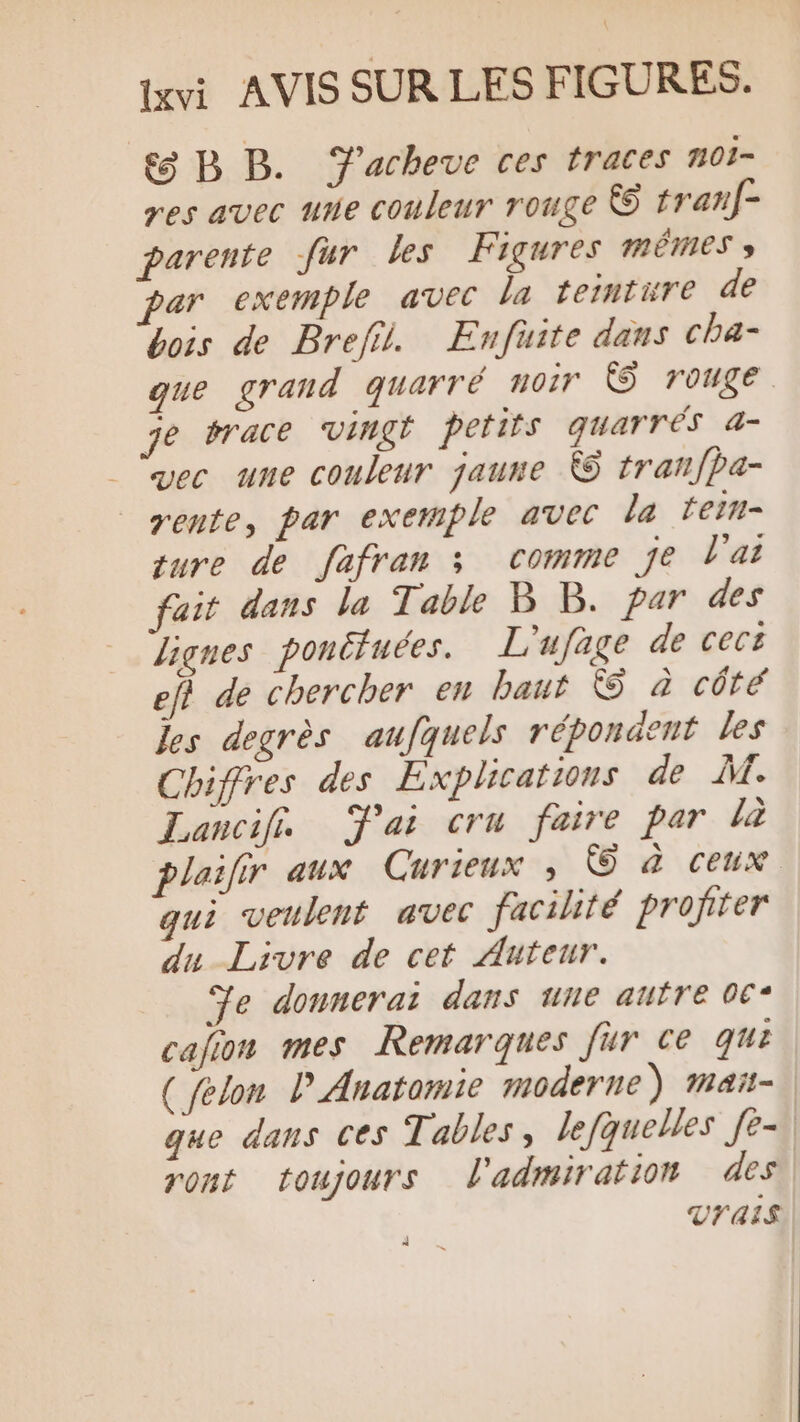 lxvi AVIS SUR LES FIGURES.
& B B. J'acheve ces traces noi-
res avec une couleur rouge & tranſ-
parente ſur les Figures mêmes,
par exemple avec la teinture de
bois de Breſil. Enſuite dans cha-
que grand quarré noir & rouge
je trace vingt petits quarrés a-
vec une couleur jaune & tranſpa-
rente, par exemple avec la tein-
ture de ſafran ; comme je l'ai
fait dans la Table B B. par des
lignes ponctuées. L'uſage de ceci
eſt de chercher en haut & à côté
les degrès auſquels répondent les
Chiffres des Explications de M.
Lanciſi. J'ai cru faire par là
plaiſir aux Curieux , & à ceux
qui veulent avec facilité profiter
du Livre de cet Auteur.
Je donnerai dans une autre oc-
caſion mes Remarques ſur ce qui
( ſelon l'Anatomie moderne ) man-
que dans ces Tables, leſquelles ſe-
ront toujours l'admiration des
vrais